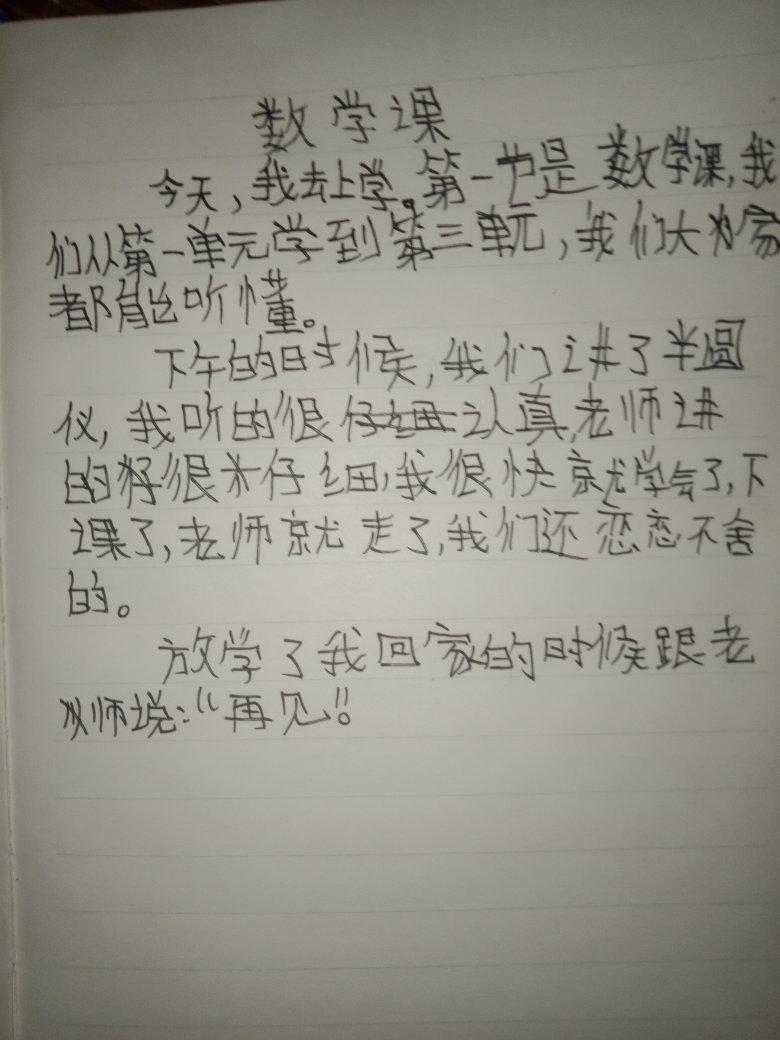 数学课
今天，我去上学。第一节是数学课，我
们从第一单元学到第三单元，我们大家
都能听懂。
下午的时候，我们讲了半圆
仪，我听的很认真，老师讲
的很仔细，我很快就学会了，下
课了，老师就走了，我们还恋恋不舍
的。
放学了我回家的时候跟老
师说：“再见！”